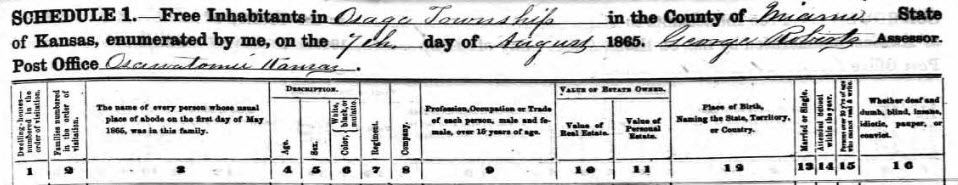 SCHEDULE 1.— Free Inhabitants in Osage Township in the County of Miami State
of Kansas, enumerated by me, on the 7th day of August 1865. George Roberts Assessor.
Post Office Osawatomie Kansas.
Dwelling-houses—numbered in the order of visitation.
Families numbered in the order of visitation.
The name of every person whose usual
place of abode on the first day of May
1865, was in this family.
DESCRIPTION.
Age.
Sex.
Color, White, black, or mulatto.
Regiment.
Company.
Profession, Occupation or Trade
of each person, male and fe-
male, over 15 years of age.
VALUE OF ESTATE OWNED.
Value of
Real Estate.
Value of
Personal
Estate.
Place of Birth,
Naming the State, Territory,
or Country.
Married or Single.
Attended School within the year.
Persons over 20 y'rs of age who cannot read & write.
Whether deaf and
dumb, blind, insane,
idiotic, pauper, or
convict.
1 2 3 4 5 6 7 8 9 10 11 12 13 14 15 16